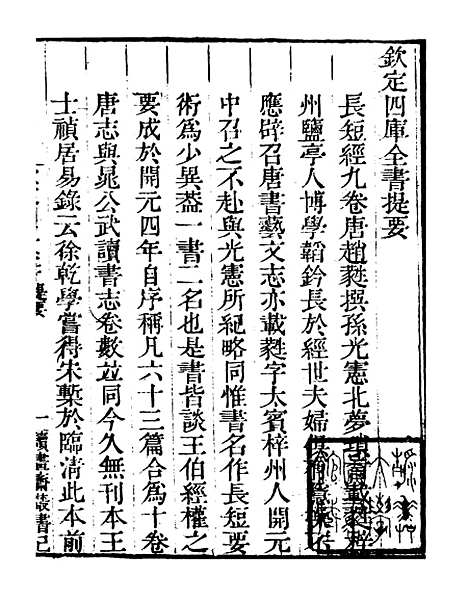 欽定四庫全書提要
長短經九卷唐趙蕤撰孫光憲北夢瑣言載蕤梓
州鹽亭人博學韜鈐長於經世夫婦俱有隱操不
應辟召唐書藝文志亦載蕤字太賓梓州人開元
中召之不赴與光憲所紀略同惟書名作長短要
術為少異葢一書二名也是書皆談王伯經權之
要成於開元四年自序稱凡六十三篇合為十卷
唐志與晁公武讀書志卷數並同今久無刊本王
士禎居易錄云徐乾學嘗得宋槧於臨清此本前
一 讀畫齋叢書己